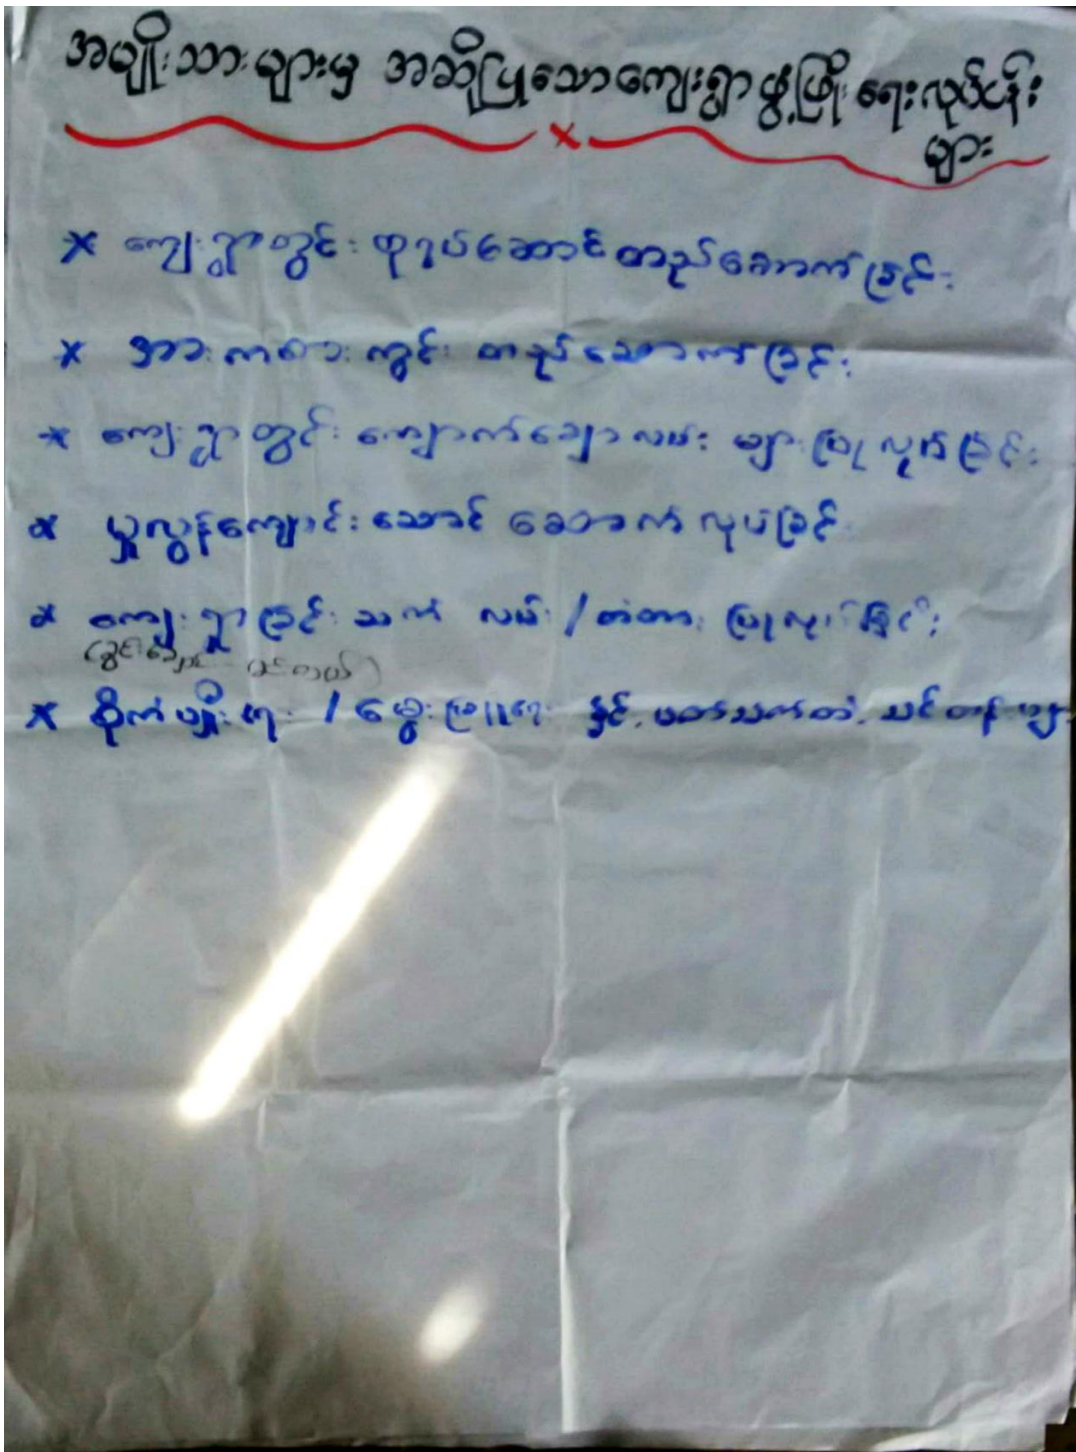 အမျိုးသားများမှ အဆိုပြုသောကျေးရွာဖွံ့ဖြိုးရေးလုပ်ငန်း
များ
* ကျေးရွာတွင်း ဗုဒ္ဓပ်ဆောင် တည်ဆောက်ခြင်း
* အားကစားကွင်း တည်ဆောက်ခြင်း
* ကျေးရွာတွင်း ကျောက်ချောလမ်း များ ပြုလုပ်ခြင်း
* မူလွန်ကျောင်းဆောင် ဆောက်လုပ်ခြင်း
* ကျေးရွာချင်းဆက် လမ်း / တံတား ပြုလုပ်ခြင်း
* စိုက်ပျိုးရေး / မွေးမြူရေး နှင့် ပတ်သက်တဲ့ သင်တန်းများ